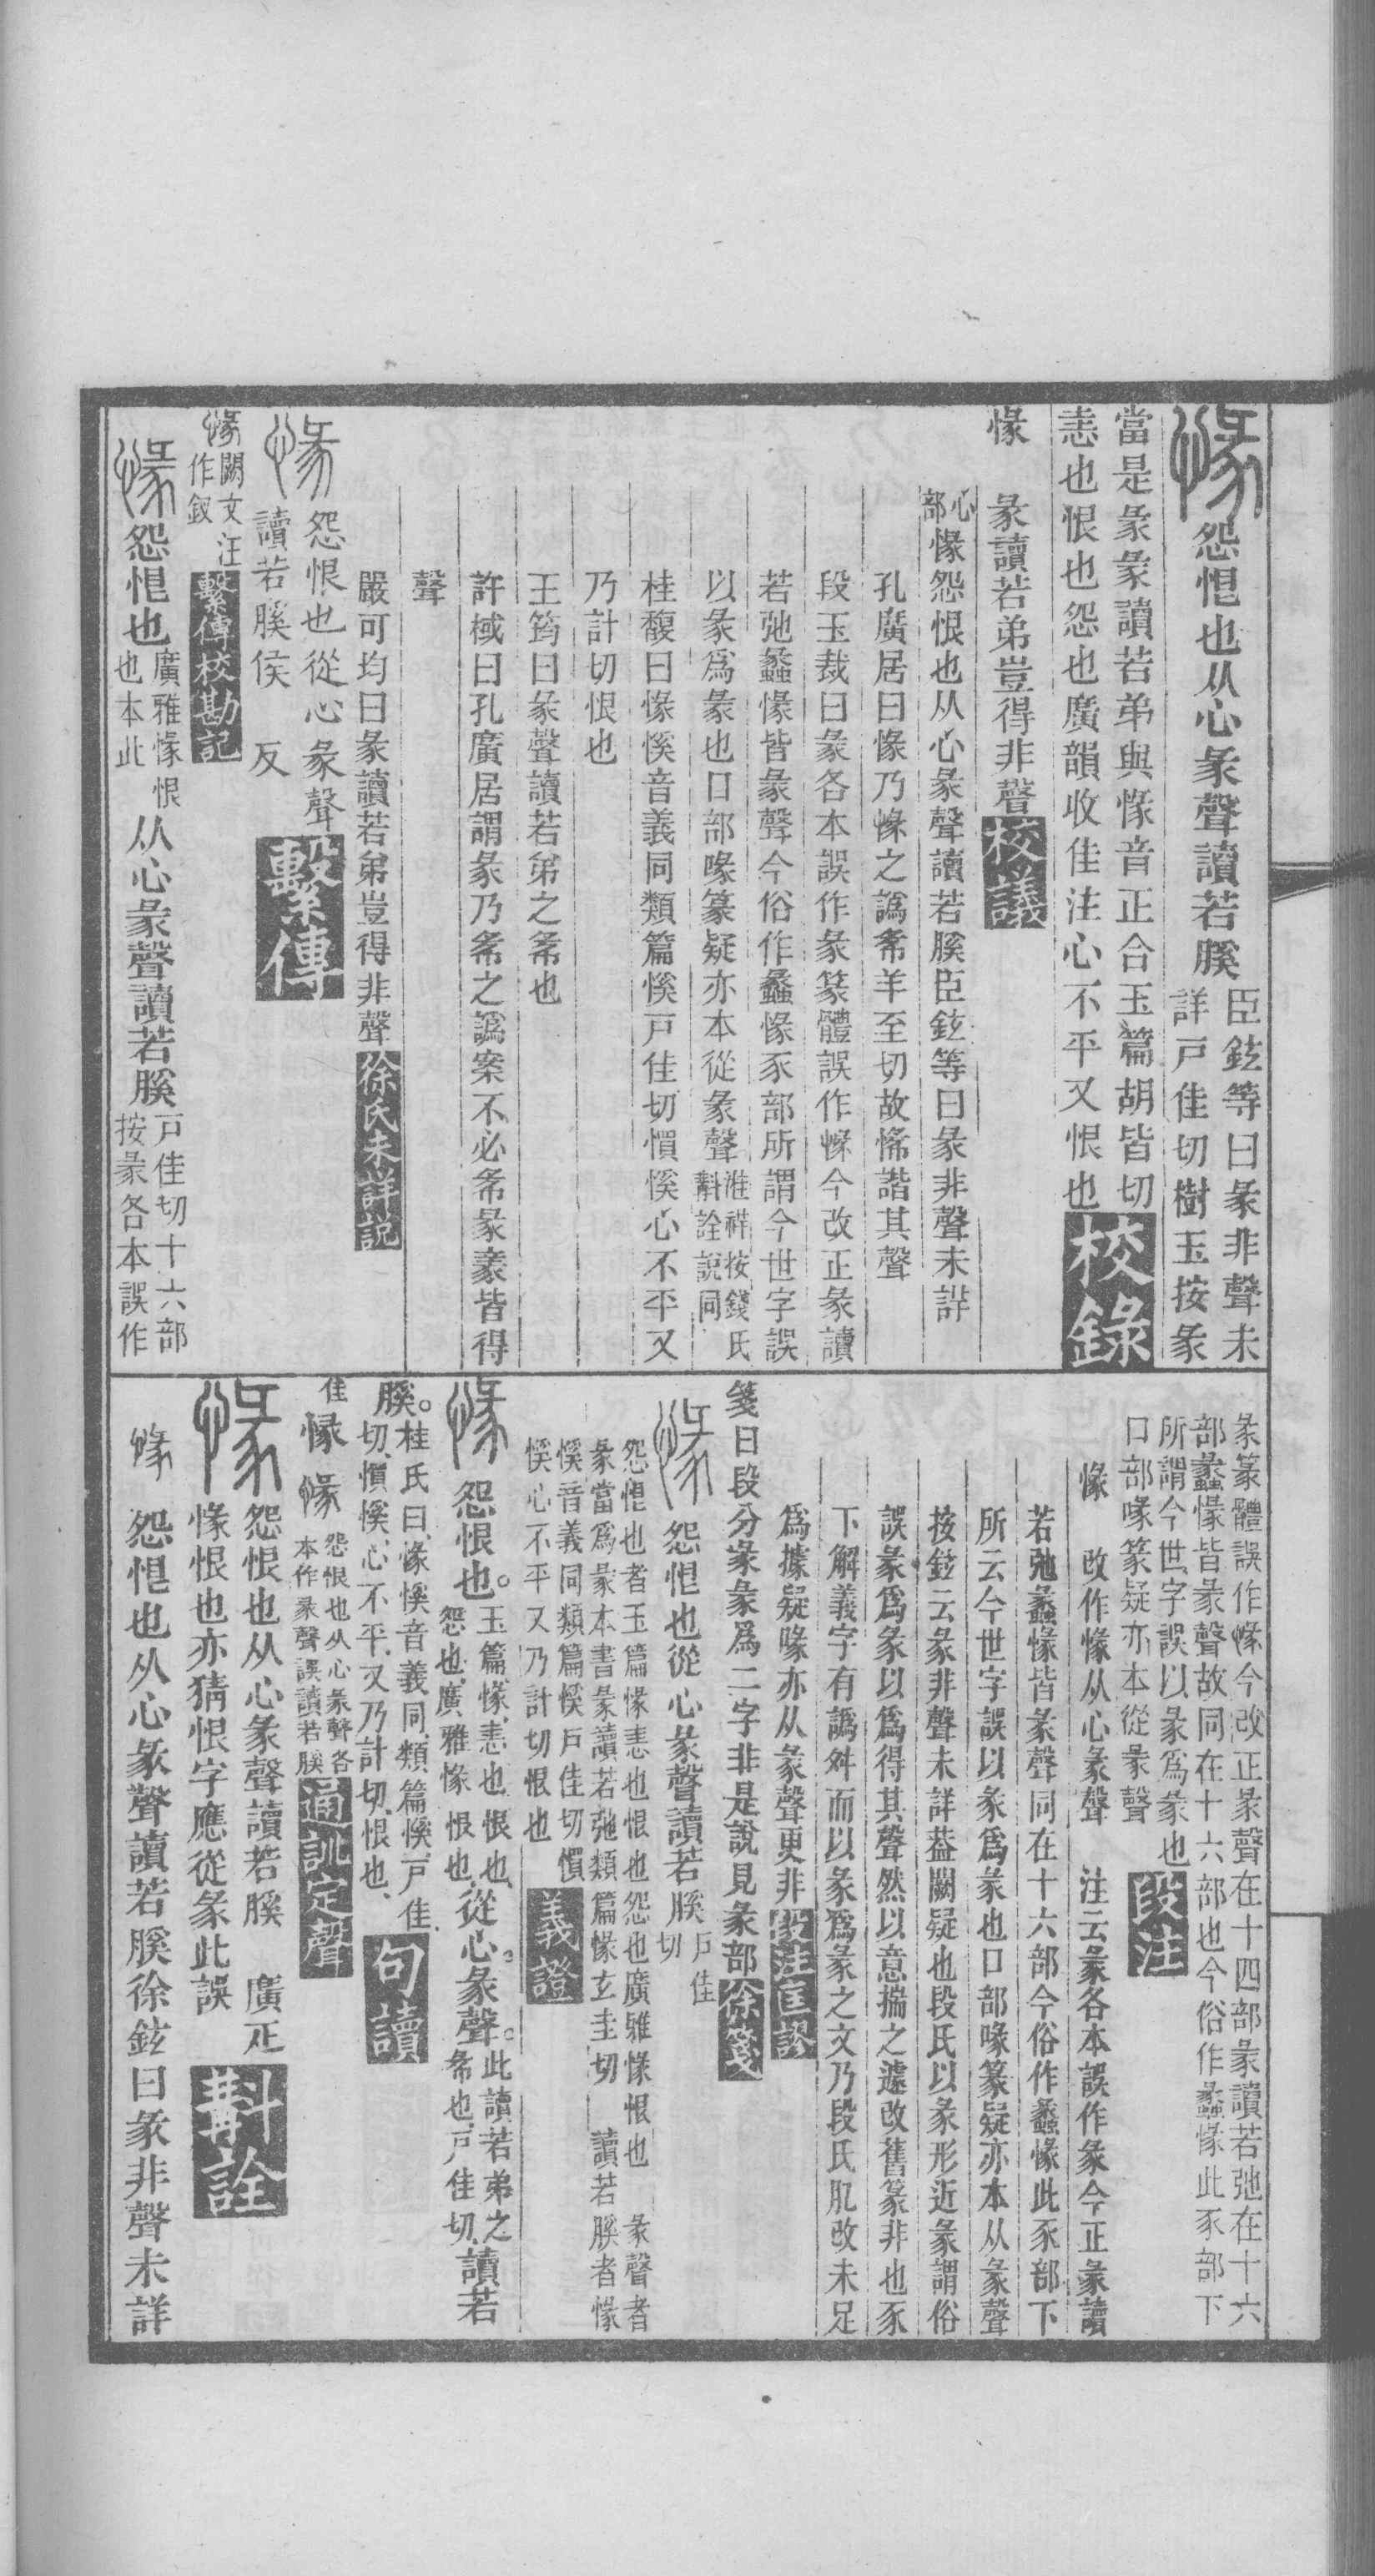 怨怛也从心彖聲讀若膎臣鉉等曰彖非聲未
詳戸佳切樹玉按彖
當是彖彖讀若弟與㥟音正合玉篇胡皆切
恚也恨也怨也廣韻收佳注心不平又恨也校錄
㥟
彖讀若弟豈得非聲校議
心部㥟怨恨也从心彖聲讀若膎臣鉉等曰彖非聲未詳
孔廣居曰㥟乃悕之譌㣇羊至切故悕諧其聲
段玉裁曰彖各本誤作彖篆體誤作㥟今改正彖讀
若弛蠡㥟皆彖聲今俗作蠡㥟豕部所謂今世字誤
以豕爲彖也口部喙篆疑亦本從彖聲淮祥按錢氏斠詮說同
桂馥曰㥟慀音義同類篇慀戸佳切慣慀心不平又
乃計切恨也
王筠曰彖聲讀若弟之㣇也
許棫曰孔廣居謂彖乃㣇之譌案不必㣇彖彖皆得
聲
嚴可均曰彖讀若弟豈得非聲徐氏未詳說
怨恨也從心彖聲
讀若膎侯 反繫傳
㥟闕文汪
作釵繫傳校勘記
怨怛也廣雅㥟恨也本此从心彖聲讀若膎戸佳切十六部按彖各本誤作
彖篆體誤作㥟今改正彖聲在十四部彖讀若弛在十六
部蠡㥟皆彖聲故同在十六部也今俗作蠡㥟此豕部下
所謂今世字誤以彖爲彖也
口部喙篆疑亦本從彖聲段注
㥟 改作㥟从心彖聲 注云彖各本誤作彖今正彖讀
若弛蠡㥟皆彖聲同在十六部今俗作蠡㥟此豕部下
所云今世字誤以豕爲彖也口部喙篆疑亦本从彖聲
按鉉云彖非聲未詳葢闕疑也段氏以彖形近彖謂俗
誤彖爲彖以爲得其聲然以意揣之遽改舊篆非也豕
下解義字有譌舛而以彖爲彖之文乃段氏肊改未足
爲據疑喙亦从彖聲更非段注匡謬
箋曰段分彖彖爲二字非是說見彖部徐箋
怨怛也從心彖聲讀若膎戸佳切
怨怛也者玉篇㥟恚也恨也怨也廣雅㥟恨也 彖聲者
彖當爲彖本書彖讀若弛類篇㥟玄圭切 讀若膎者㥟
慀音義同類篇慀戸佳切慣
慀心不平又乃計切恨也義證
怨恨也。玉篇、㥟、恚也、恨也、怨也、廣雅㥟恨也、從心。彖聲。此讀若弟之㣇也、戸佳切、讀若
膎。桂氏曰、㥟慀音義同、類篇慀、戸佳切、慣慀、心不平、又乃計切、恨也、句讀
佳㥟 怨恨也从心彖聲各本作彖聲誤讀若膎通訓定聲
怨恨也从心彖聲讀若膎 廣疋
㥟恨也亦猜恨字應從彖此誤斠詮
㥟 怨怛也从心彖聲讀若膎徐鉉曰彖非聲未詳